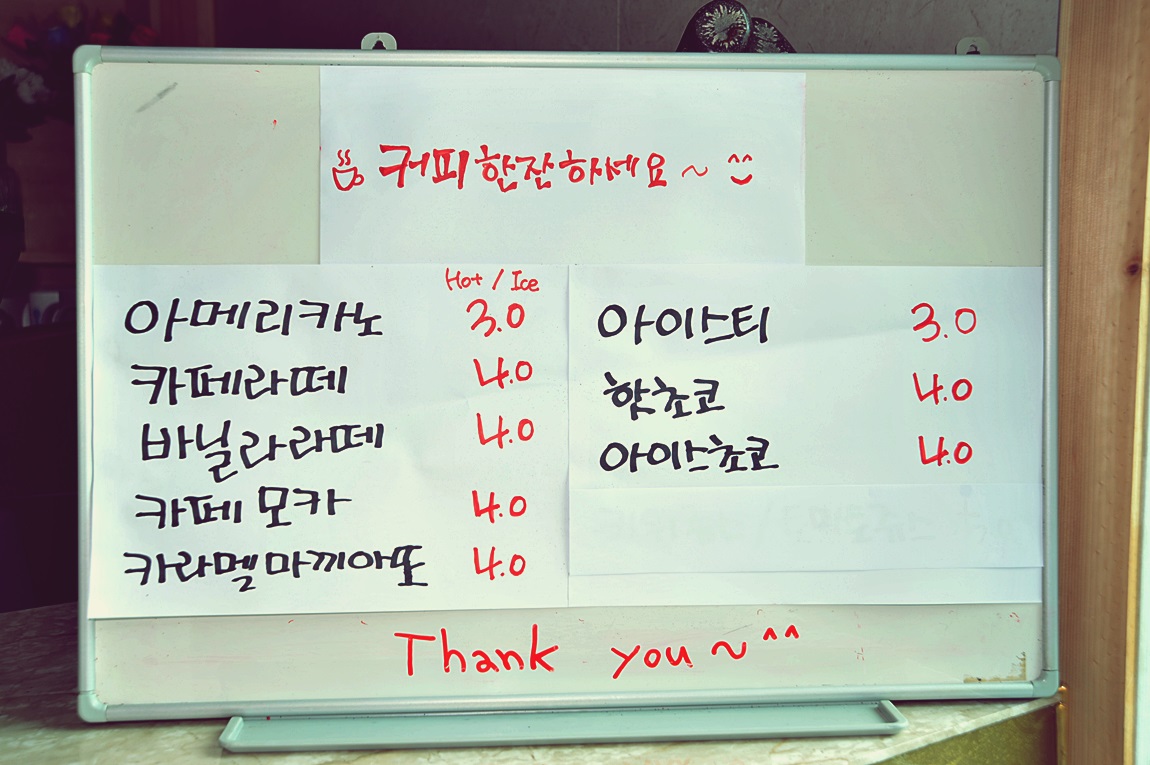 커피한잔하세요~ ^^
Hot / Ice
아메리카노 3.0
카페라떼 4.0
바닐라라떼 4.0
카페모카 4.0
카라멜마끼아또 4.0
아이스티 3.0
핫초코 4.0
아이스초코 4.0
Thank you~^^